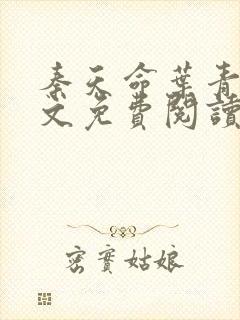 秦天命葉青
文免費閱讀
密實姑娘